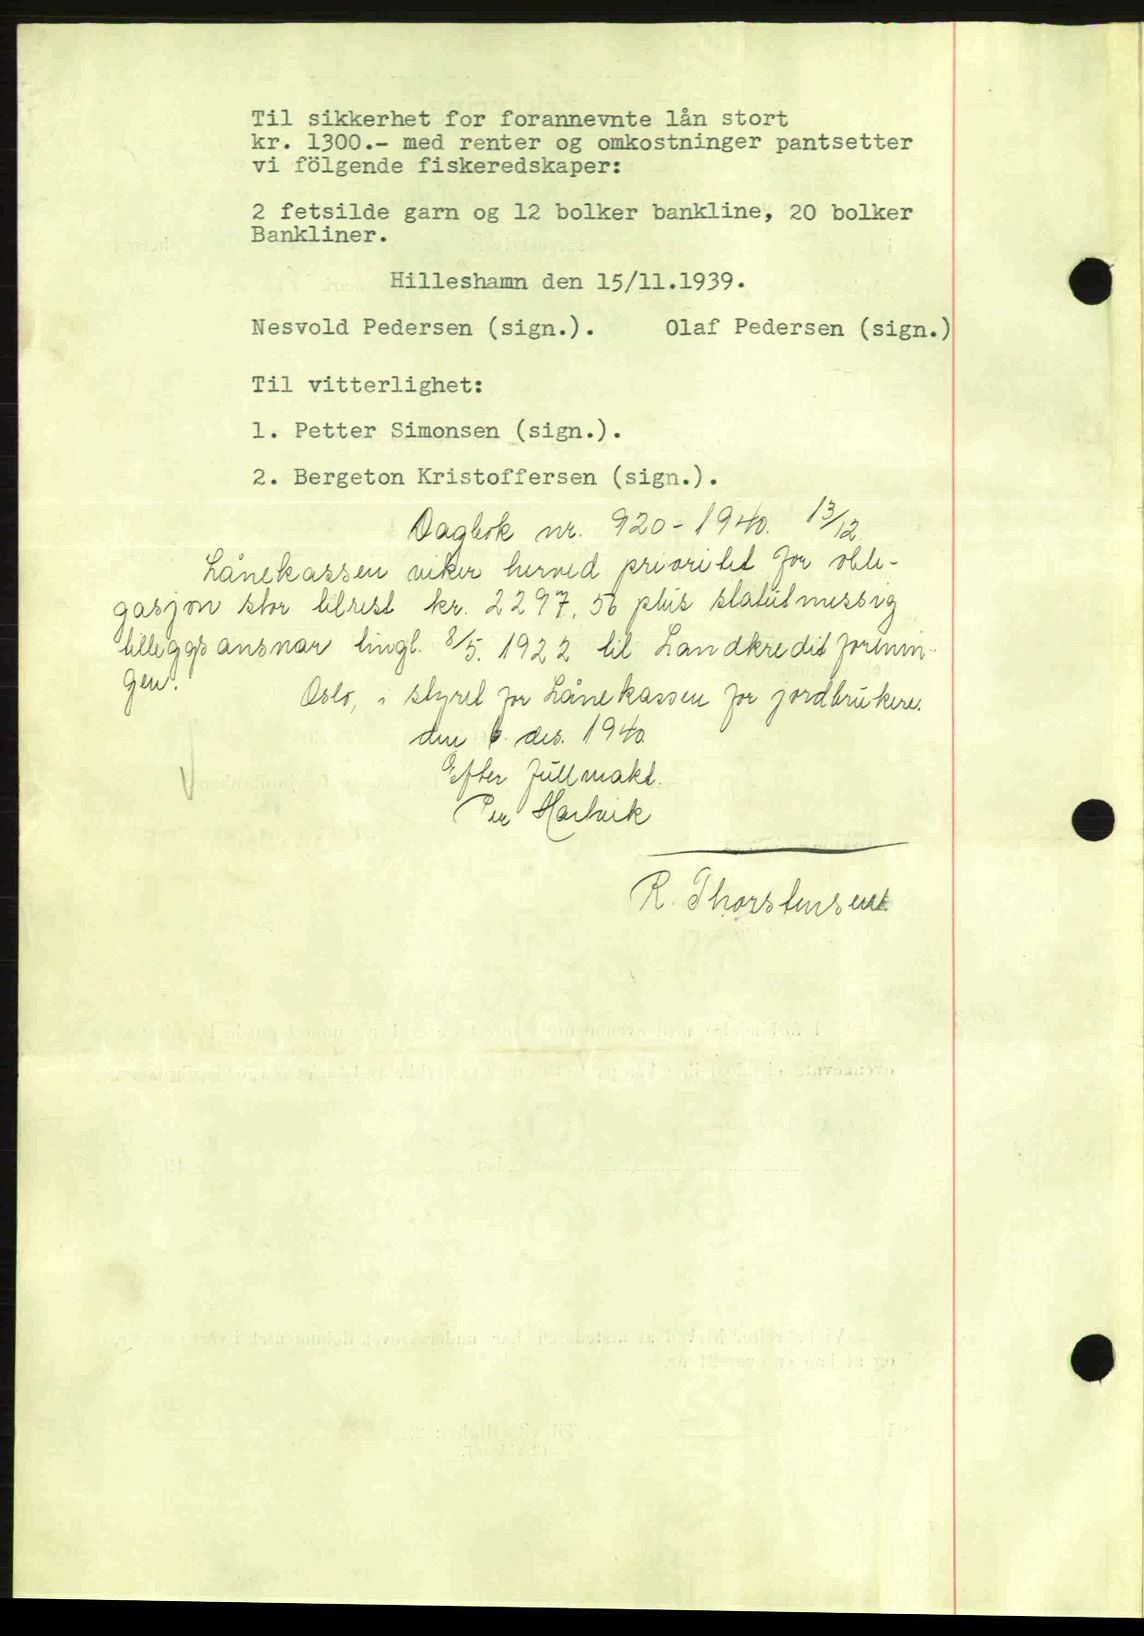 Til sikkerhet for forannevnte lån stort
kr. 1300.- med renter og omkostninger pantsetter
vi fölgende fiskeredskaper:
2 fetsilde garn og 12 bolker bankline, 20 bolker
Bankliner.
Hilleshamn den 15/11.1939.
Nesvold Pedersen (sign.). Olaf Pedersen (sign.)
Til vitterlighet:
1. Petter Simonsen (sign.).
2. Bergeton Kristoffersen (sign.).
Dagbok nr. 920-1940. 13/12.
Lånekassen viker herved prioritet for obli-
gasjon stor tilrest kr. 2297,56 plus statutmessig
tilleggsansvar tingl. 8/5. 1922 til Landkreditforenin-
gen.
Oslo, i styret for Lånekassen for jordbrukere.
den 6. des. 1940.
Efter fullmakt.
Per Hartvik
R. Thorstensen